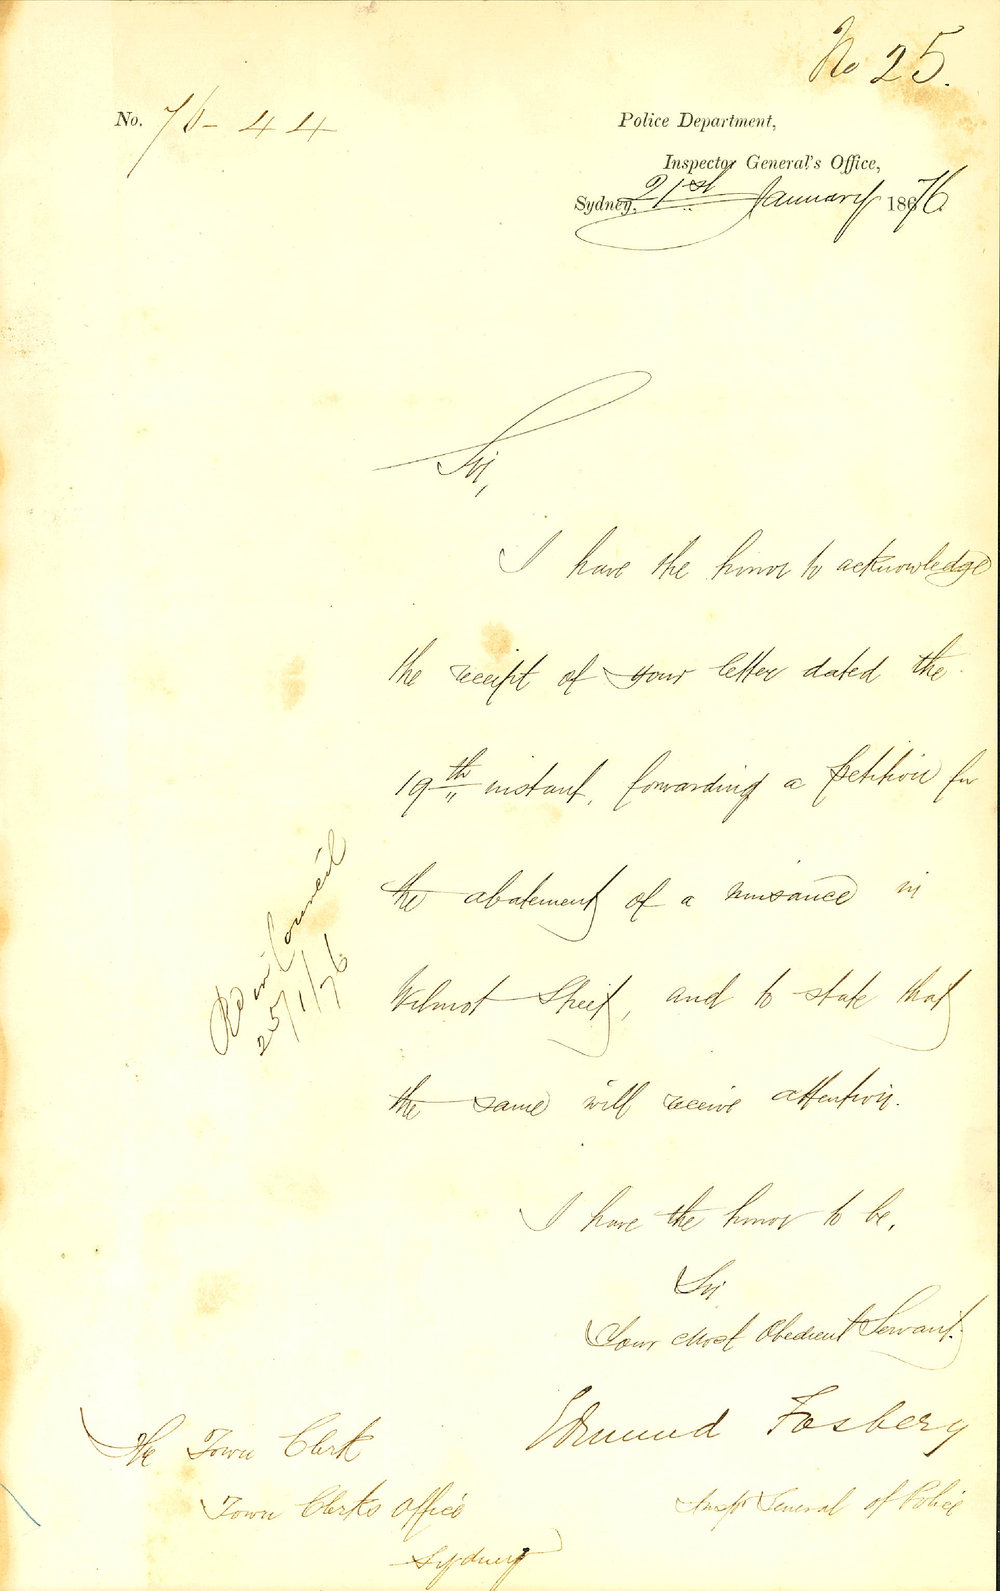 No 25.
No. 76-44
Police Department,
Inspector General's Office,
Sydney, 21st January 1876.
Sir,
I have the honor to acknowledge
the receipt of your letter dated the
19th instant, forwarding a petition for
the abatement of a nuisance in
Wilmot Street, and to state that
the same will receive attention.
Rd in Council
25/1/76
I have the honor to be,
Sir
Your Most Obedient Servant.
Edmund Fosbery
Insp General of Police
The Town Clerk
Town Clerks Office
Sydney